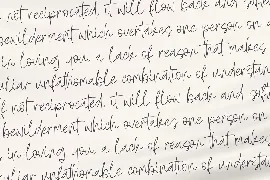 not reciprocated, it will flow back and
bewilderment which overtakes one person on
in loving you a lack of reason that makes
unfathomable combination of understan
not reciprocated, it will flow back and
bewilderment which overtakes one person on
in loving you a lack of reason that makes
unfathomable combination of understan